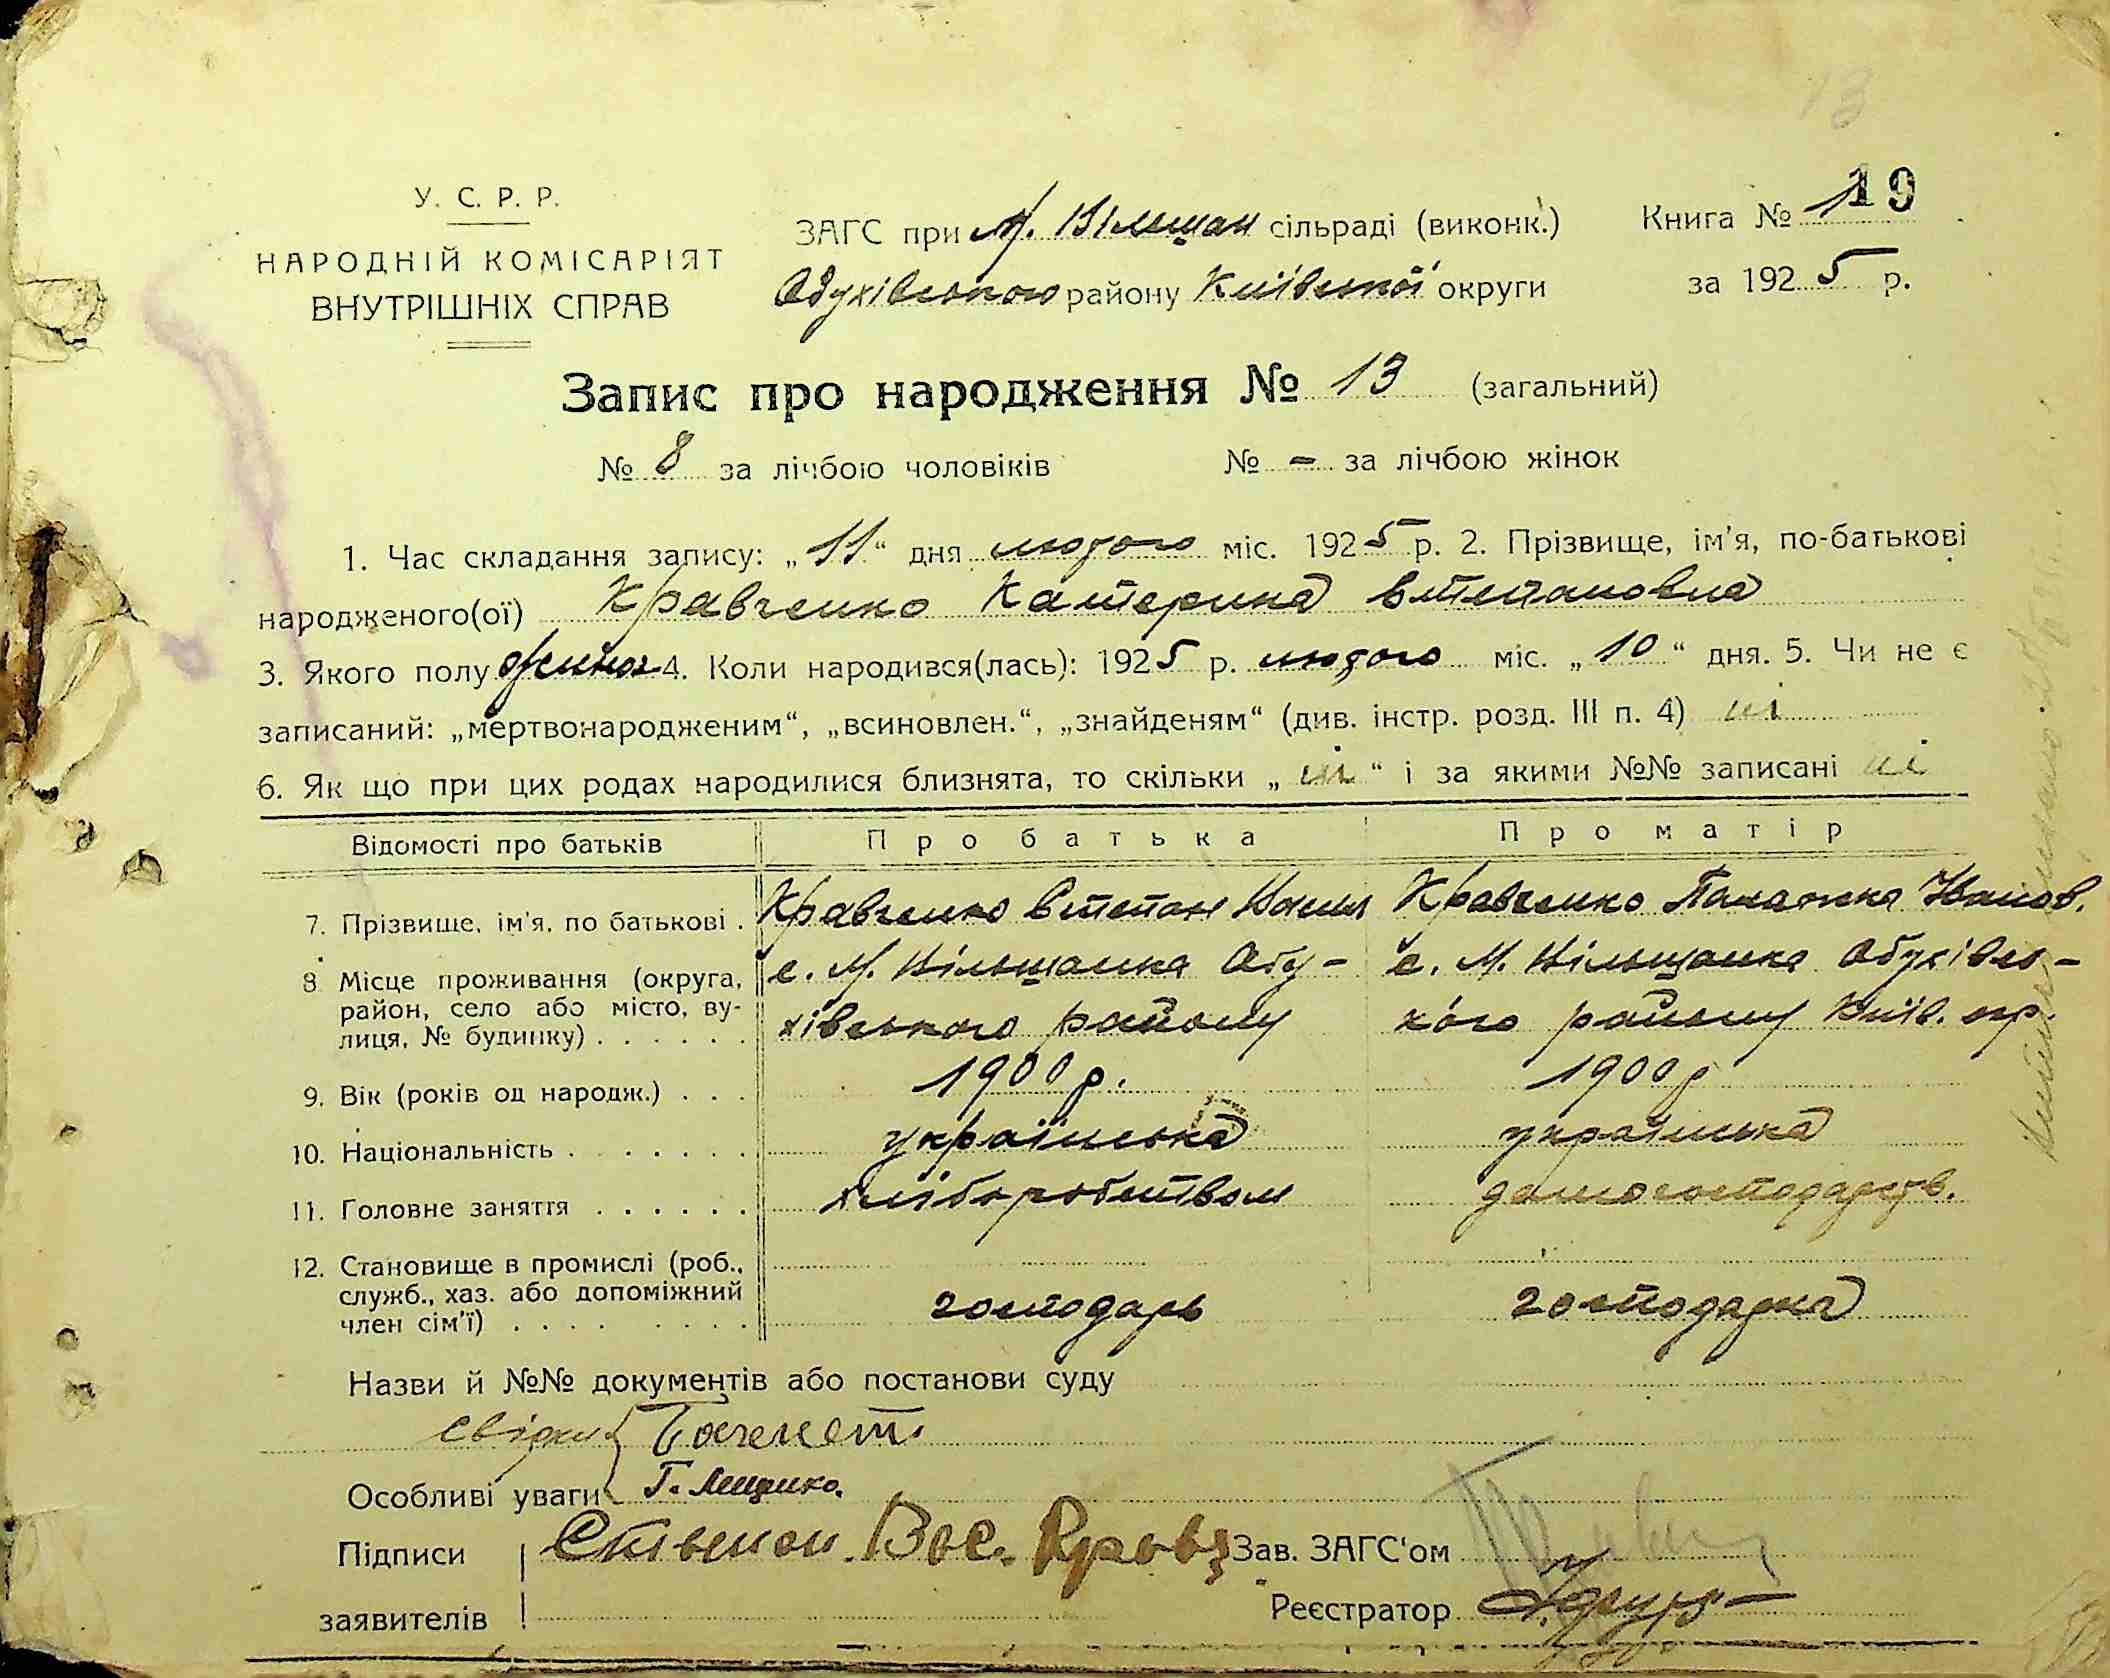 13
У. С. Р. Р.
НАРОДНІЙ КОМІСАРІЯТ
ВНУТРІШНІХ СПРАВ
ЗАГС при М. Вільшан сільраді (виконк.) Книга № 1 19
Обухівського району Київської округи за 1925 р.
Запис про народження № 13 (загальний)
№ 8 за лічбою чоловіків № – за лічбою жінок
1. Час складання запису: „11“ дня лютого міс. 1925 р. 2. Прізвище, ім'я, по-батькові
народженого(ої) Кравченко Катерина Степановна
3. Якого полу 4. Коли народився(лась): 1925 р. лютого міс. „10“ дня. 5. Чи не є
записаний: „мертвонародженим“, „всиновлен.“, „знайденям“ (див. інстр. розд. III п. 4) ні
6. Як що при цих родах народилися близнята, то скільки „ні“ і за якими №№ записані ні
Відомості про батьків Про батька Про матір
7. Прізвище, ім'я, по батькові . Кравченко Степан Васил Кравченко Палажка Іванов.
8 Місце проживання (округа, район, село або місто, вулиця, № будинку) . . . . . . с. М. Вільшанка Обу-
хівського району
с. М. Вільшанка Обухівсь-
кого району Київ. окр.
9. Вік (років од народж.) . . . 1900 р. 1900 р
10. Національність . . . . . . . українська українська
11. Головне заняття . . . . . . хліборобством домогосподарств.
12. Становище в промислі (роб., служб., хаз. або допоміжний член сім'ї) . . . . . . . . господарь господарка
Назви й №№ документів або постанови суду
Свідки
Особливі уваги Г. Лещенко.
Підписи Степан Вас. Кравч Зав. ЗАГС'ом
заявителів Реєстратор